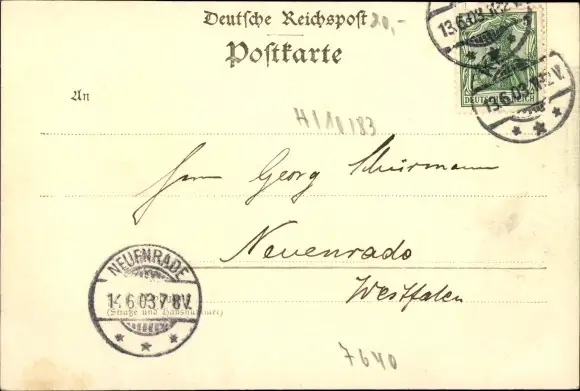 Deutsche Reichspost 20,-
Postkarte
13.6.03.11-12 V.
DEUTSCHES REICH
13.6.03.11-12 V.
An
H110183
Herrn Georg Schürmann
Neuenrade
Westfalen
NEUENRADE
14.6.03 7-8V.
(Straße und Hausnummer)
7640